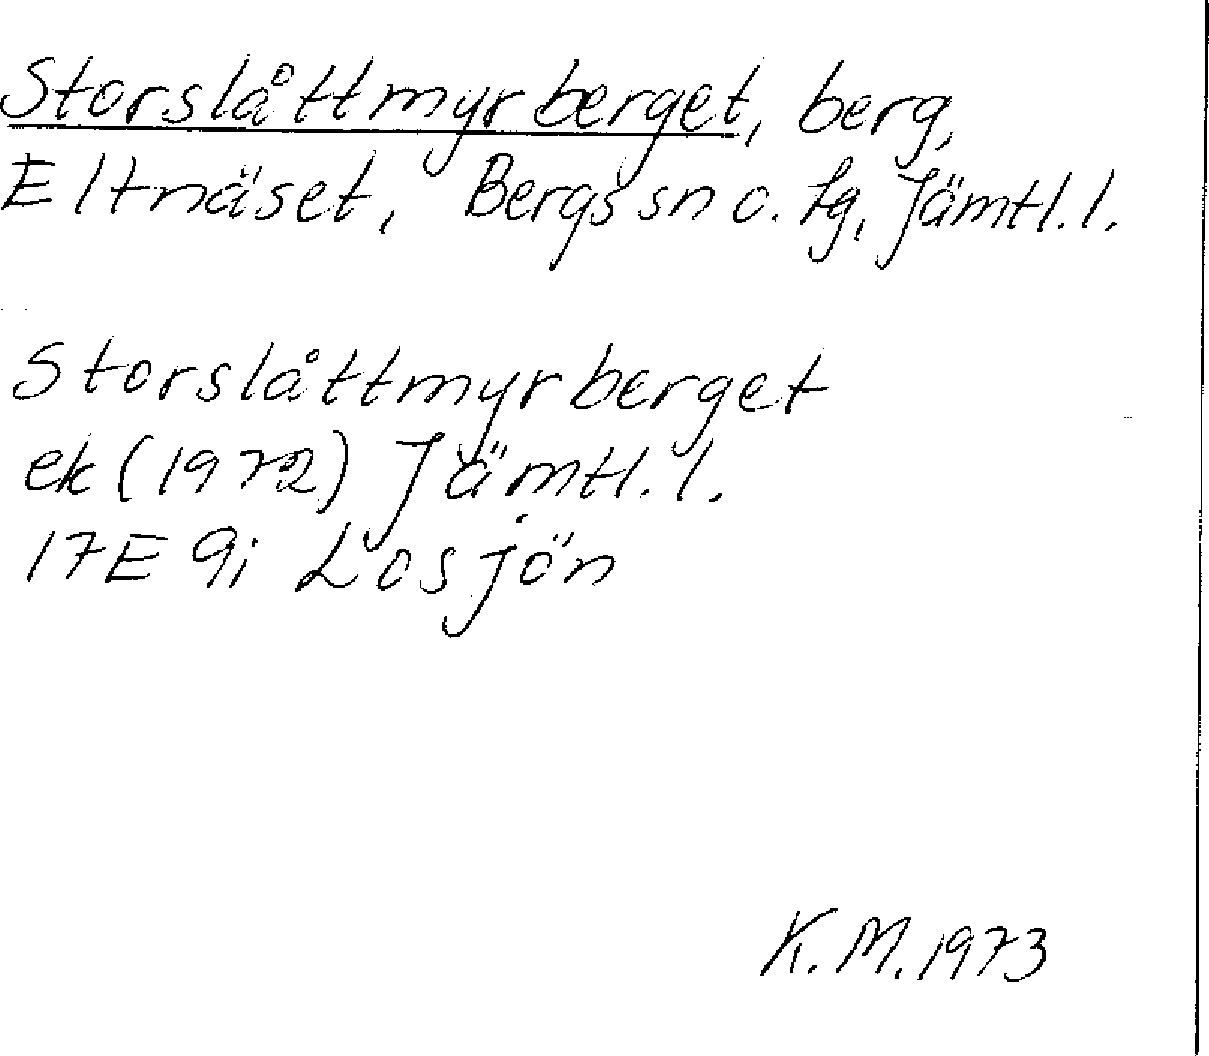 Storslåttmyrberget, berg,
Eltnäset, Bergs sn o. tg, Jämtl. l.
Storslåttmyrberget
ek (1972) Jämtl. l.
17E 9i Losjön
K. M. 1973